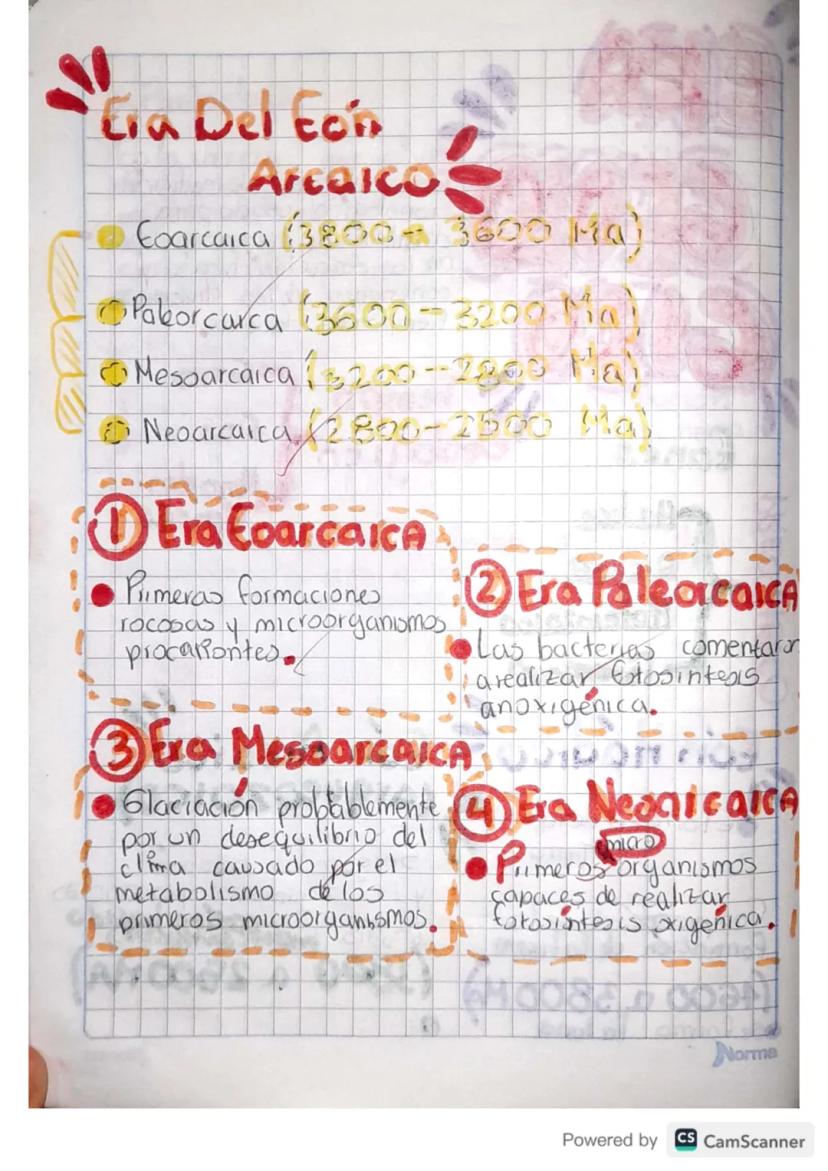 Era Del Eón
Arcaico
Eoarcaica (3800 - 3600 Ma)
Paleorcarca (3600 - 3200 Ma)
Mesoarcaica (3200 - 2800 Ma)
Neoarcaica (2800 - 2500 Ma)
① Era Eoarcaica
Primeras formaciones
rocosas y microorganismos
procariontes.
② Era Paleorcaica
Las bacterias comentaron
a realizar fotosintesis
anoxigénica.
③ Era Mesoarcaica
Glaciación probtablemente
por un desequilibrio del
clima causado por el
metabolismo de los
primeros microorganismos.
④ Era Neoarcaica
micro
Primeros organismos
capaces de realizar
fotosíntesis oxigénica.
Norma
Powered by CS CamScanner